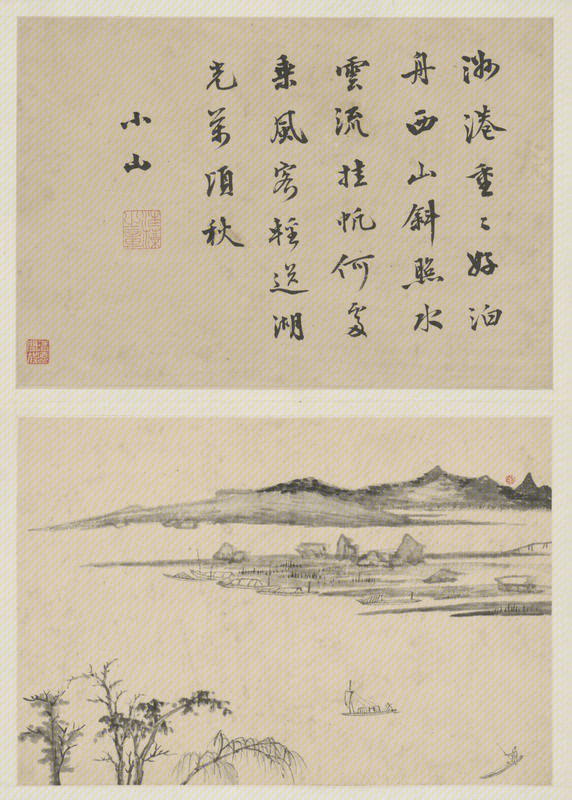 港重〻好泊
舟西山斜照水
雲流挂帆何處
乘風客輕送湖
光萬頃秋
小山